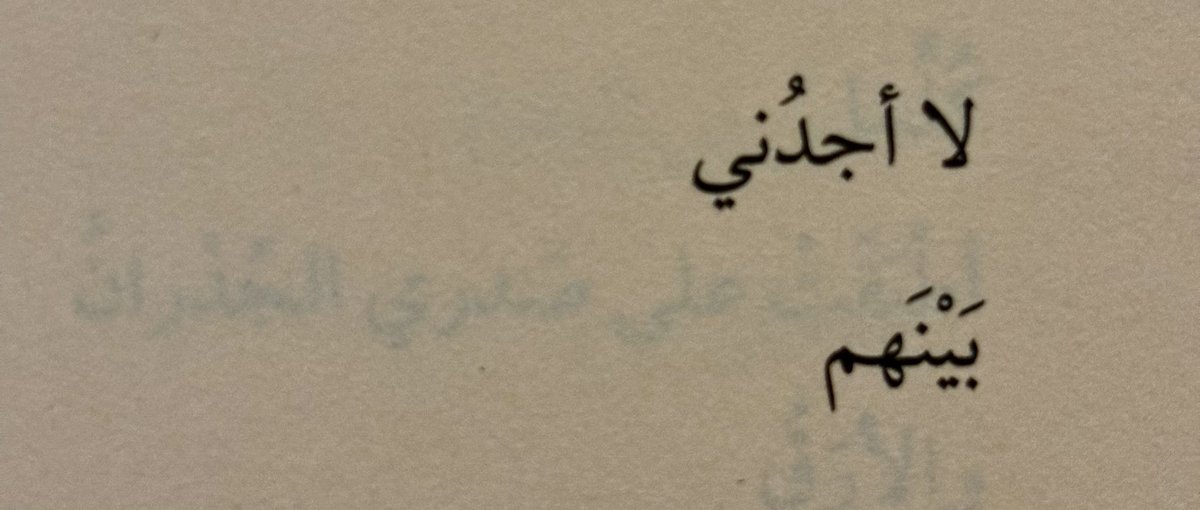 لا أجدُني
بَيْنَهم